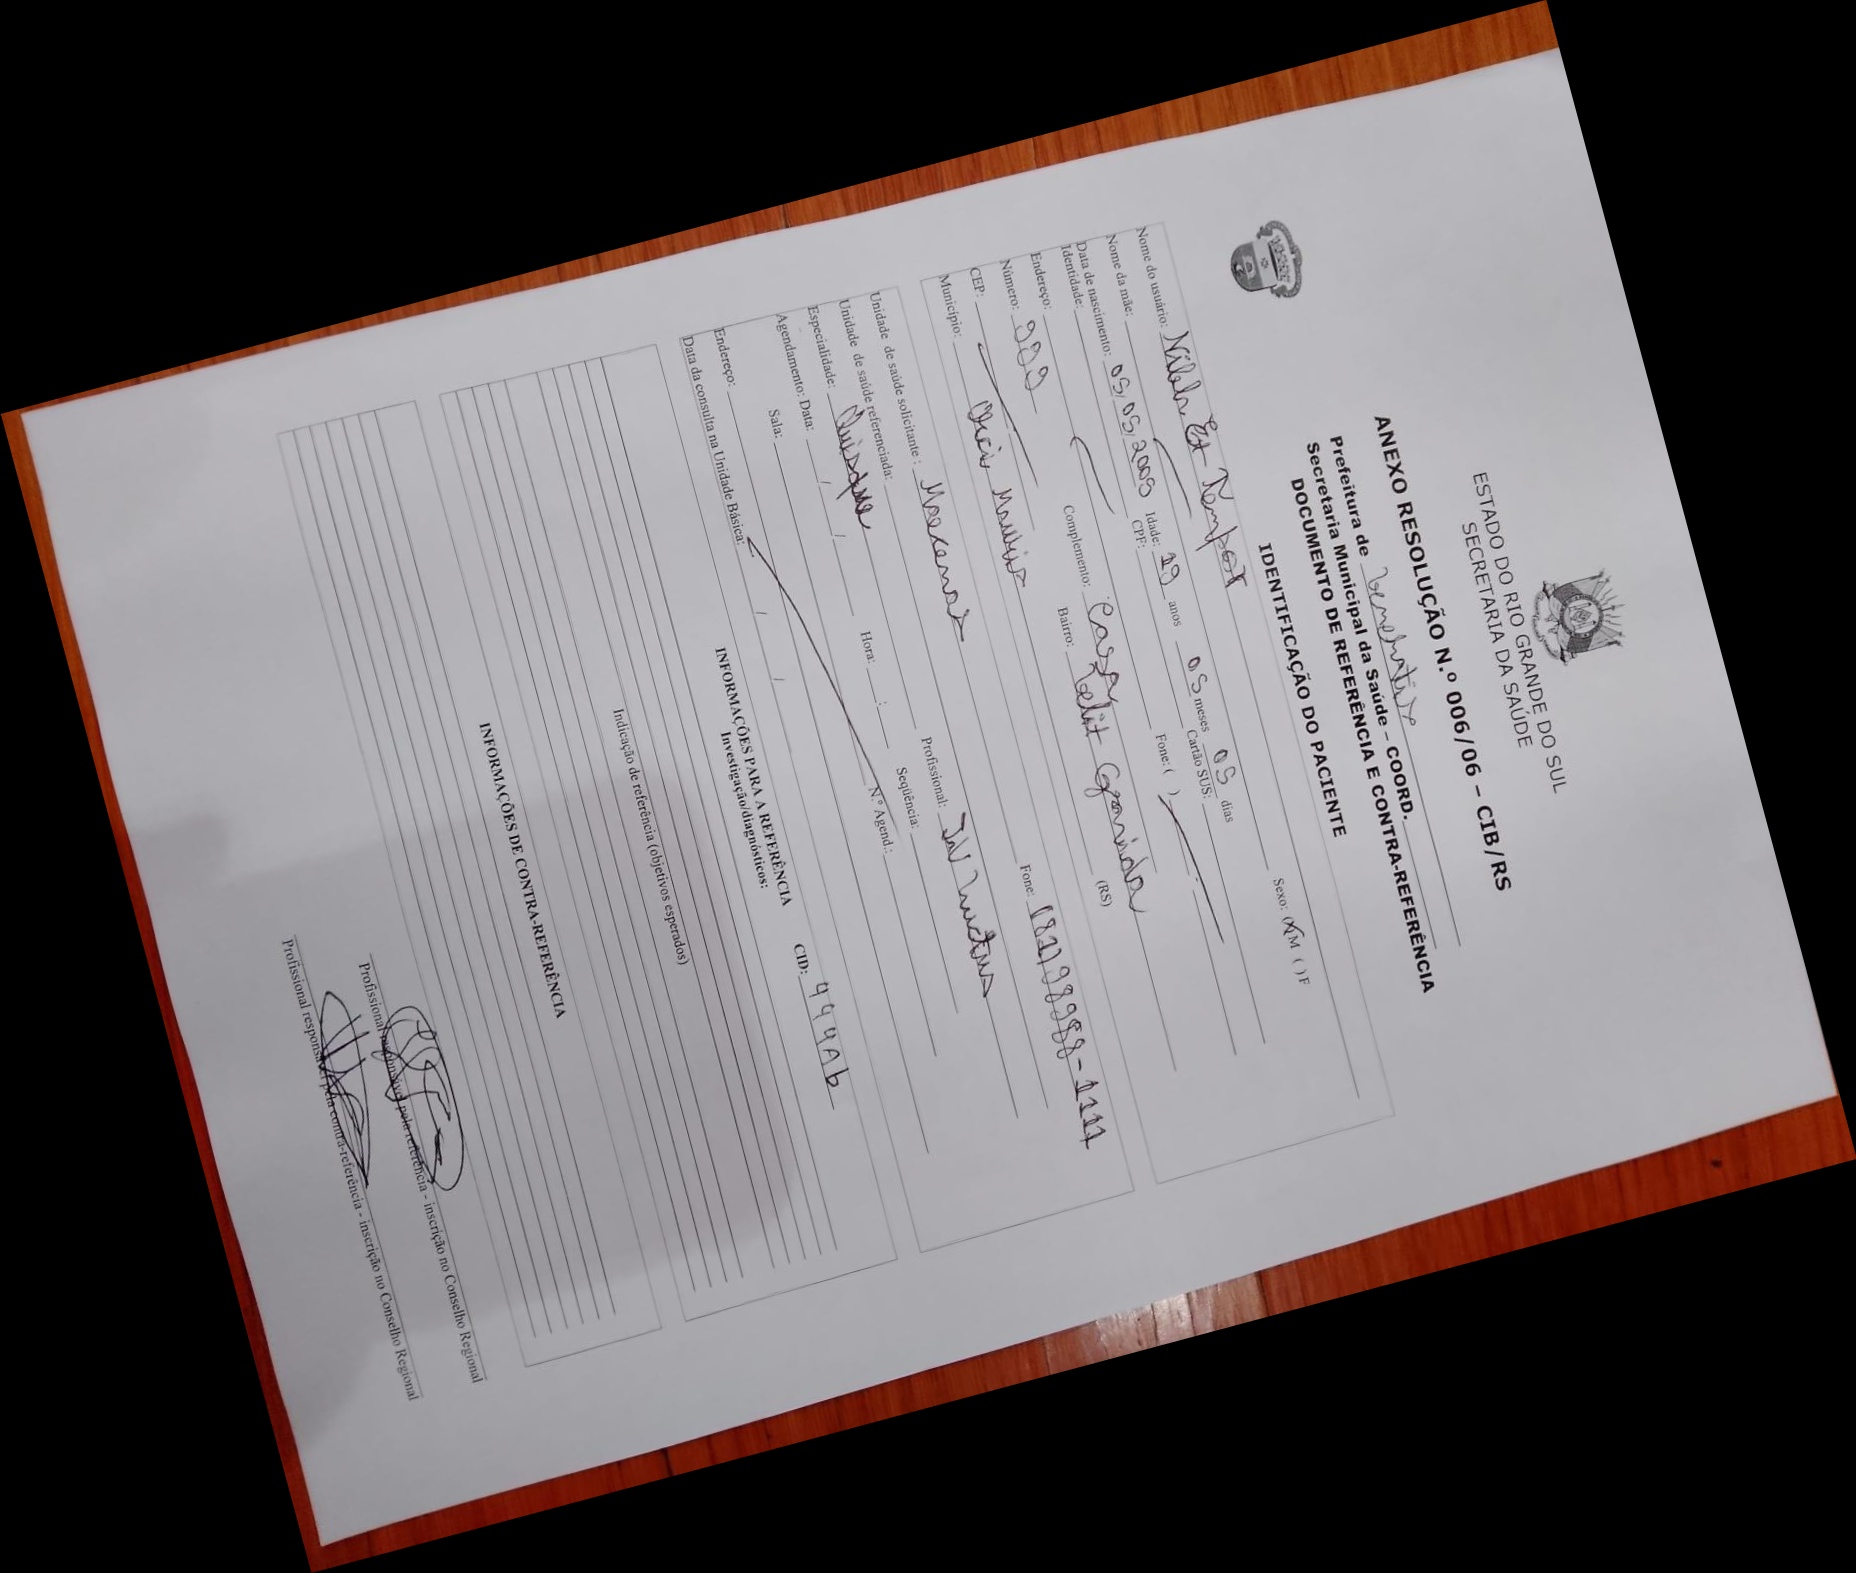 ESTADO DO RIO GRANDE DO SUL
SECRETARIA DA SAÚDE
ANEXO RESOLUÇÃO N.º 006/06 – CIB/RS
Prefeitura de
Secretaria Municipal da Saúde – COORD.
DOCUMENTO DE REFERÊNCIA E CONTRA-REFERÊNCIA
IDENTIFICAÇÃO DO PACIENTE
Nome do usuário: Et Tempor Sexo: (X)M ( )F
Nome da mãe:
Data de nascimento: 05/05/2005 Idade: 19 anos 05 meses 05 dias
Identidade: CPF: Cartão SUS:
Endereço: Fone: ( )
Número: 999 Complemento: Casa
CEP: Bairro: Velit Gravida
Município: Orci Mauris (RS)
Unidade de saúde solicitante: Maecenas Fone: (81) 98988-1111
Unidade de saúde referenciada:
Especialidade: Quisque Profissional: In Luctus
Agendamento: Data: / / Hora: : Seqüência:
Sala: N.º Agend.:
Endereço:
Data da consulta na Unidade Básica: / /
INFORMAÇÕES PARA A REFERÊNCIA CID: 444Ab
Investigação/diagnósticos:
Indicação de referência (objetivos esperados)
INFORMAÇÕES DE CONTRA-REFERÊNCIA
Profissional responsável pela referência - inscrição no Conselho Regional
Profissional responsável pela contra-referência - inscrição no Conselho Regional